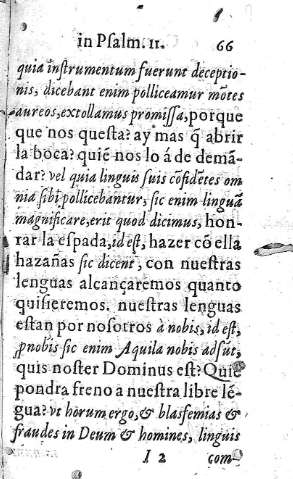 in Psalm. 11. 66
quia instrumentum fuerunt deceptio-
nis, dicebant enim polliceamur mõtes
aureos, extollamus promissa, porque
que nos questa? ay mas q̃ abrir
la boca? quiẽ nos lo á de demã-
dar? vel quia linguis suis cõfidẽtes om
nia sibi pollicebantur, sic enim linguã
magnificare, erit quod dicimus, hon-
rar la espada, id est, hazer cõ ella
hazañas sic dicent, con nuestras
lenguas alcançaremos quanto
quisieremos. nuestras lenguas
estan por nosotros à nobis, id est,
p nobis sic enim Aquila nobis adsũt,
quis noster Dominus est? Quiẽ
pondra freno a nuestra libre lẽ-
gua? vt horum ergo, & blasfemias &
fraudes in Deum & homines, linguis
I 2 com-